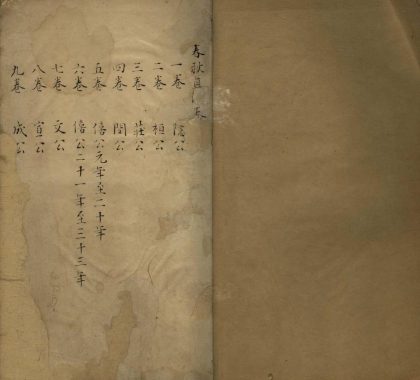 春秋
一卷 隱公
二卷 桓公
三卷 莊公
四卷 閔公
五卷 僖公元年至二十年
六卷 僖公二十一年至三十三年
七卷 文公
八卷 宣公
九卷 成公